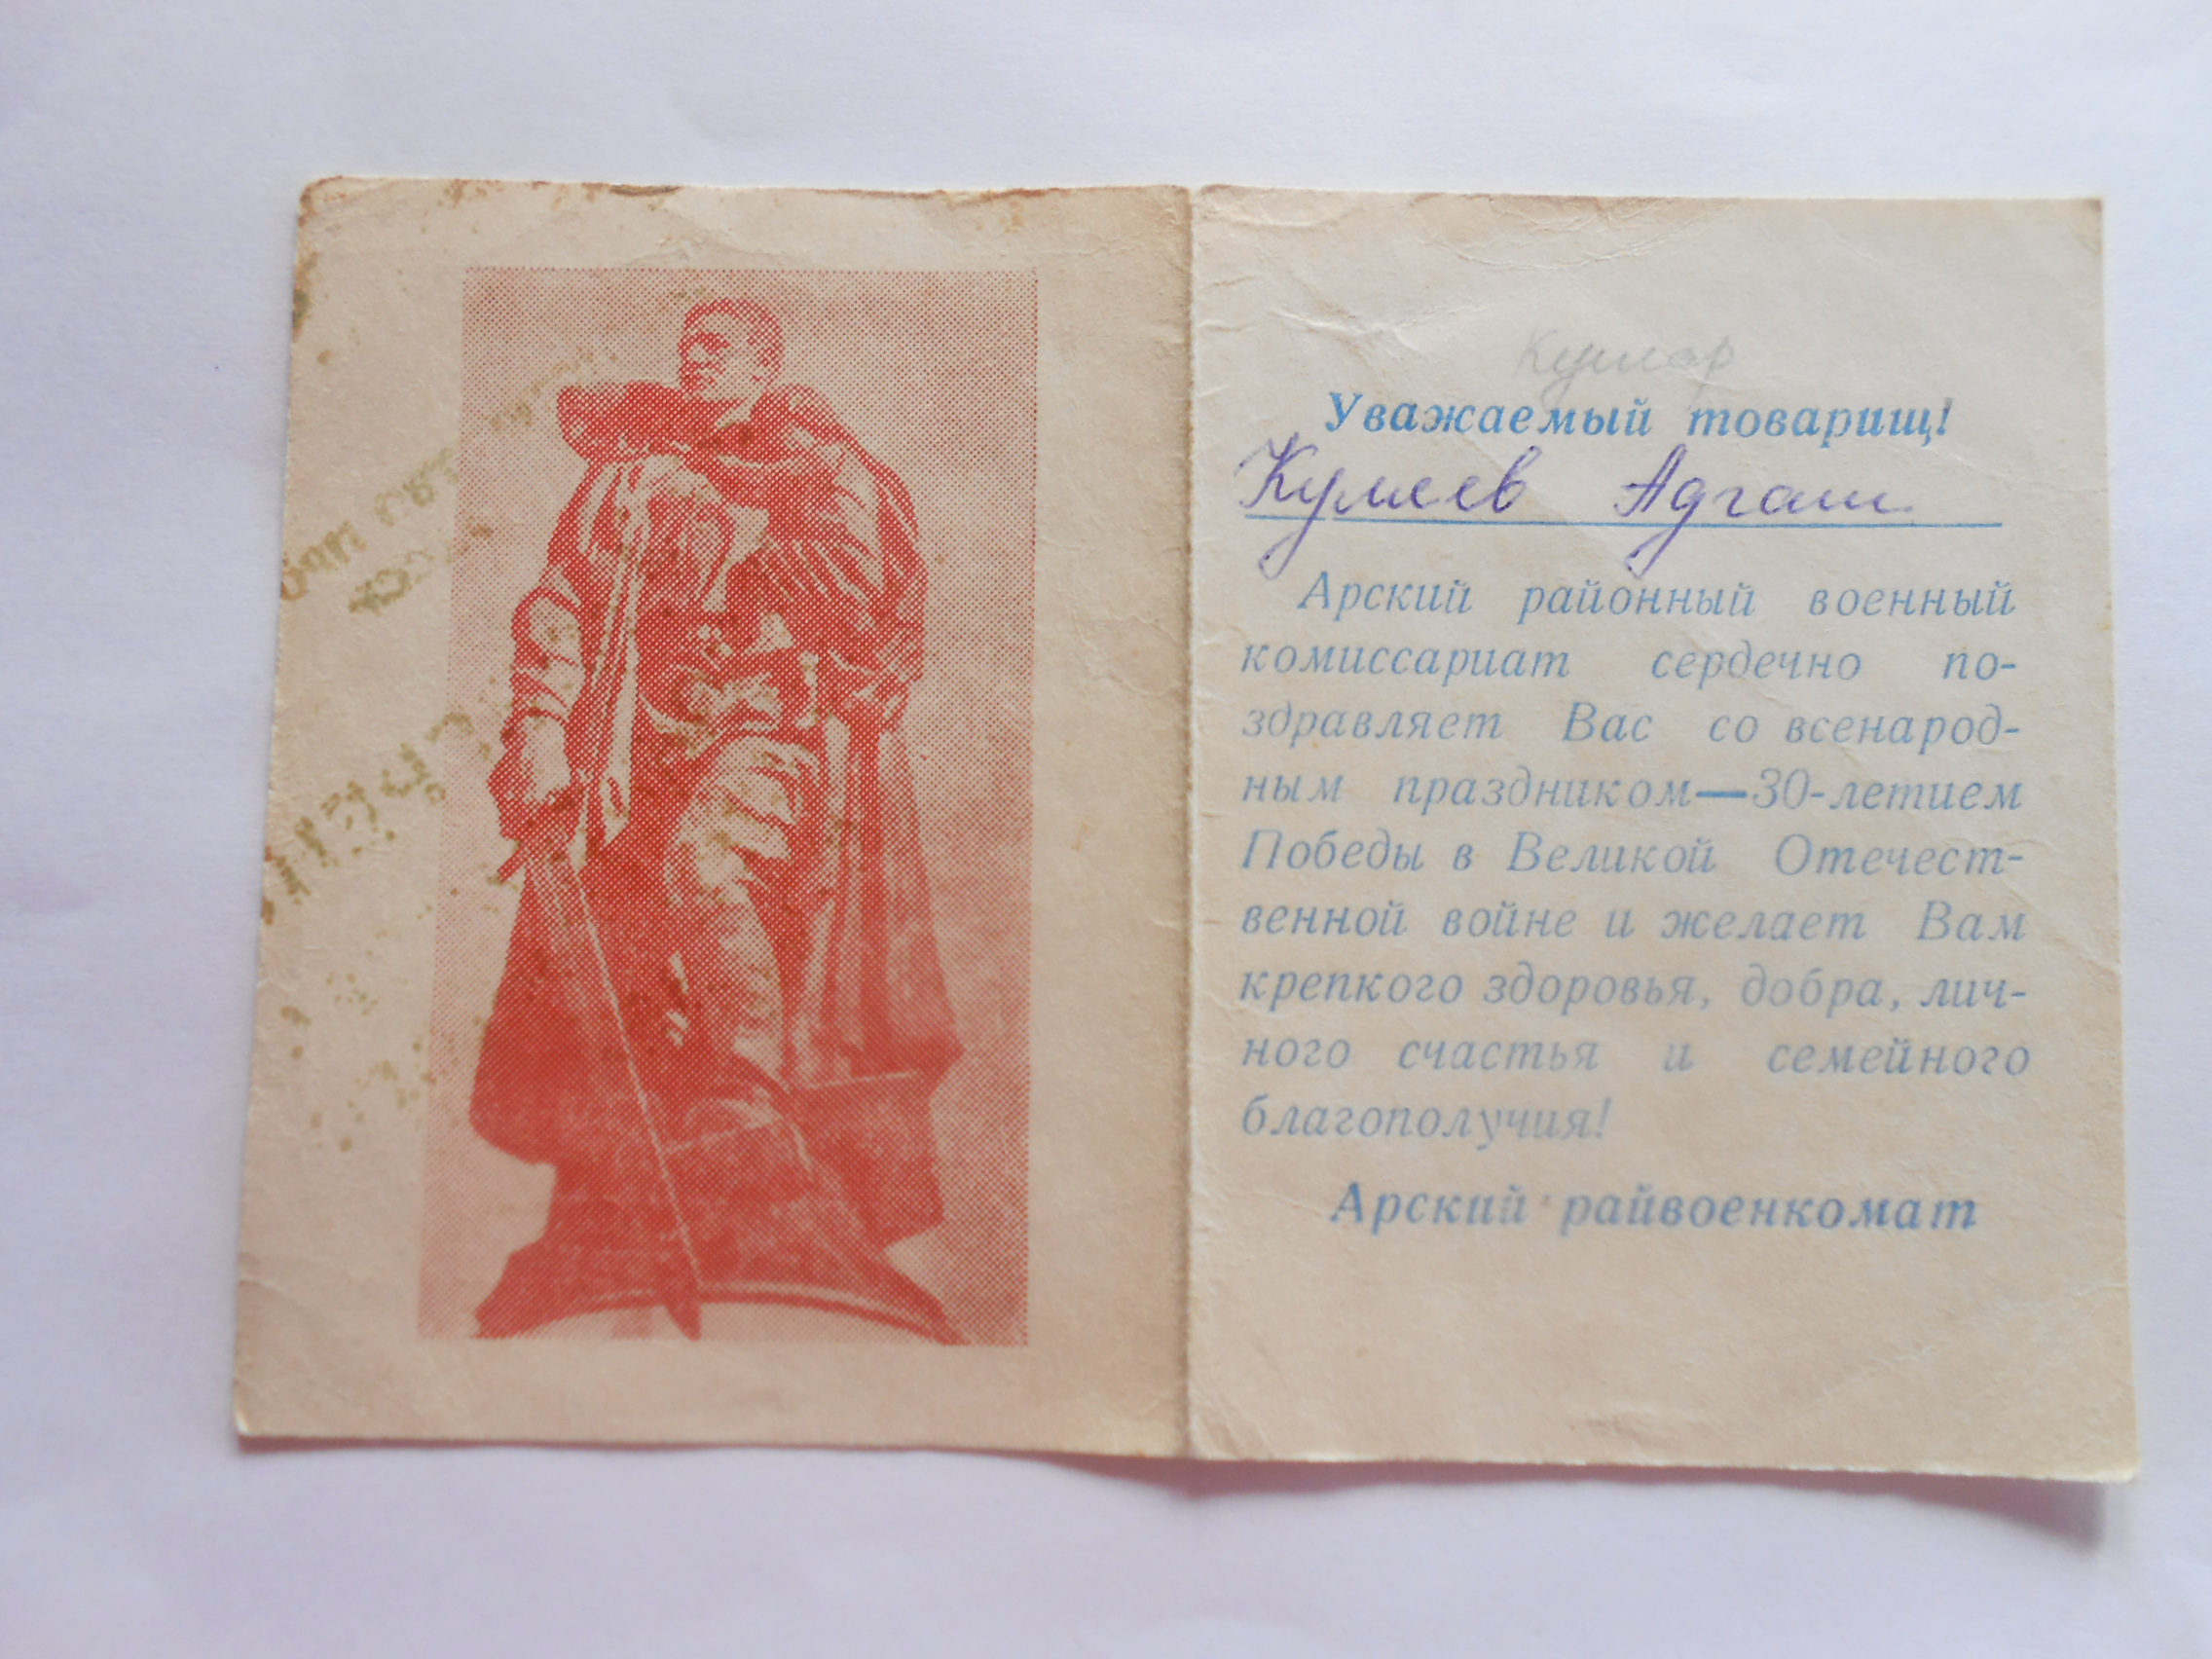 Кушар
Уважаемый товарищ!
Кулеев Адгам
Арский районный военный
комиссариат сердечно по-
здравляет Вас со всенарод-
ным праздником—30-летием
Победы в Великой Отечест-
венной войне и желает Вам
крепкого здоровья, добра, лич-
ного счастья и семейного
благополучия!
Арский райвоенкомат